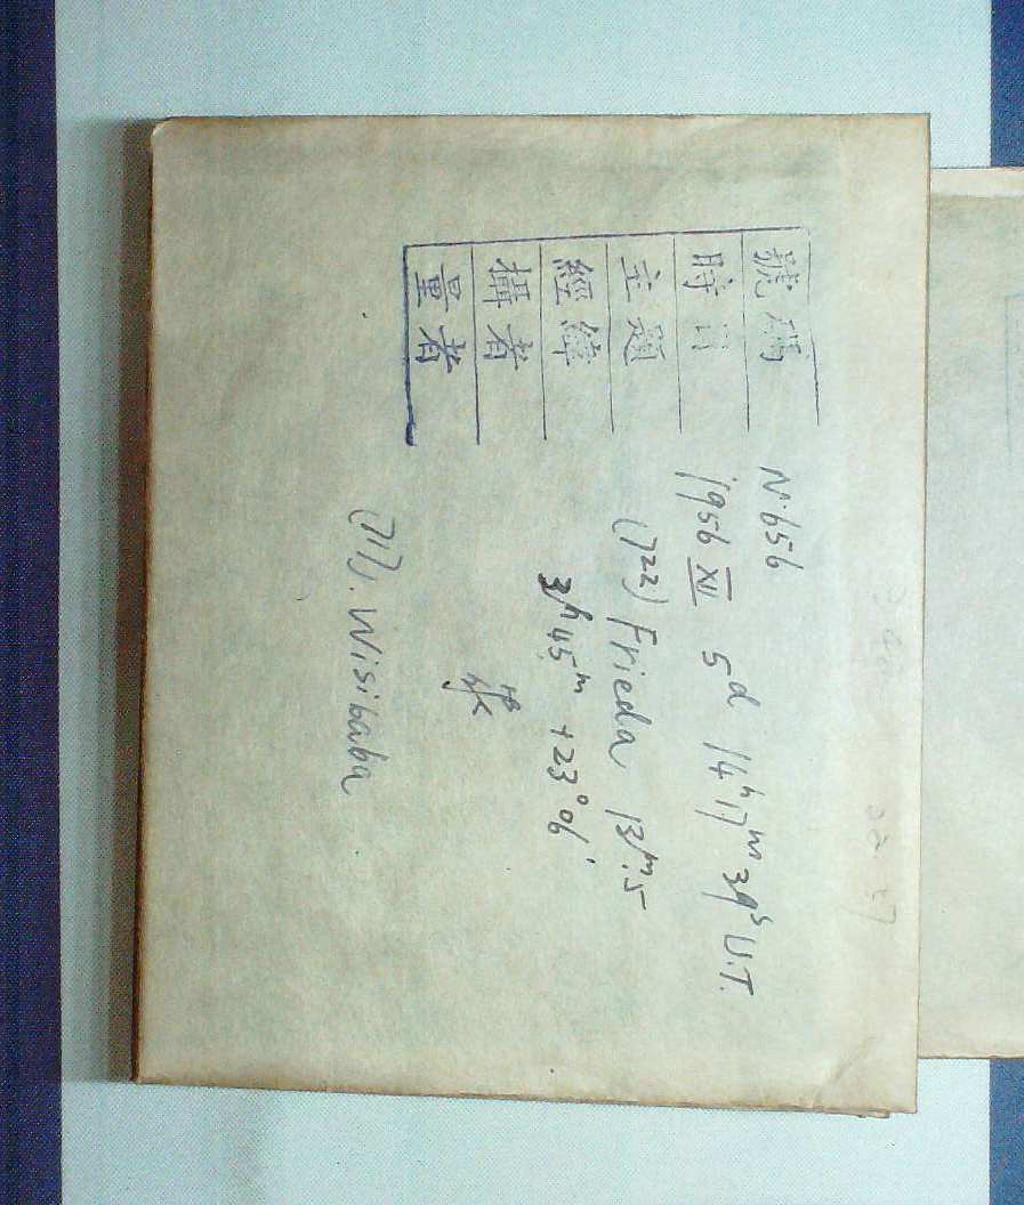 號碼 N.656
時日 1956 XII 5ᵈ 14ʰ17ᵐ39ˢ U.T.
主題 (722) Frieda 13ᵐ.5
經緯 3ʰ45ᵐ +23°06'
攝者
量者
(717). Wisibaba